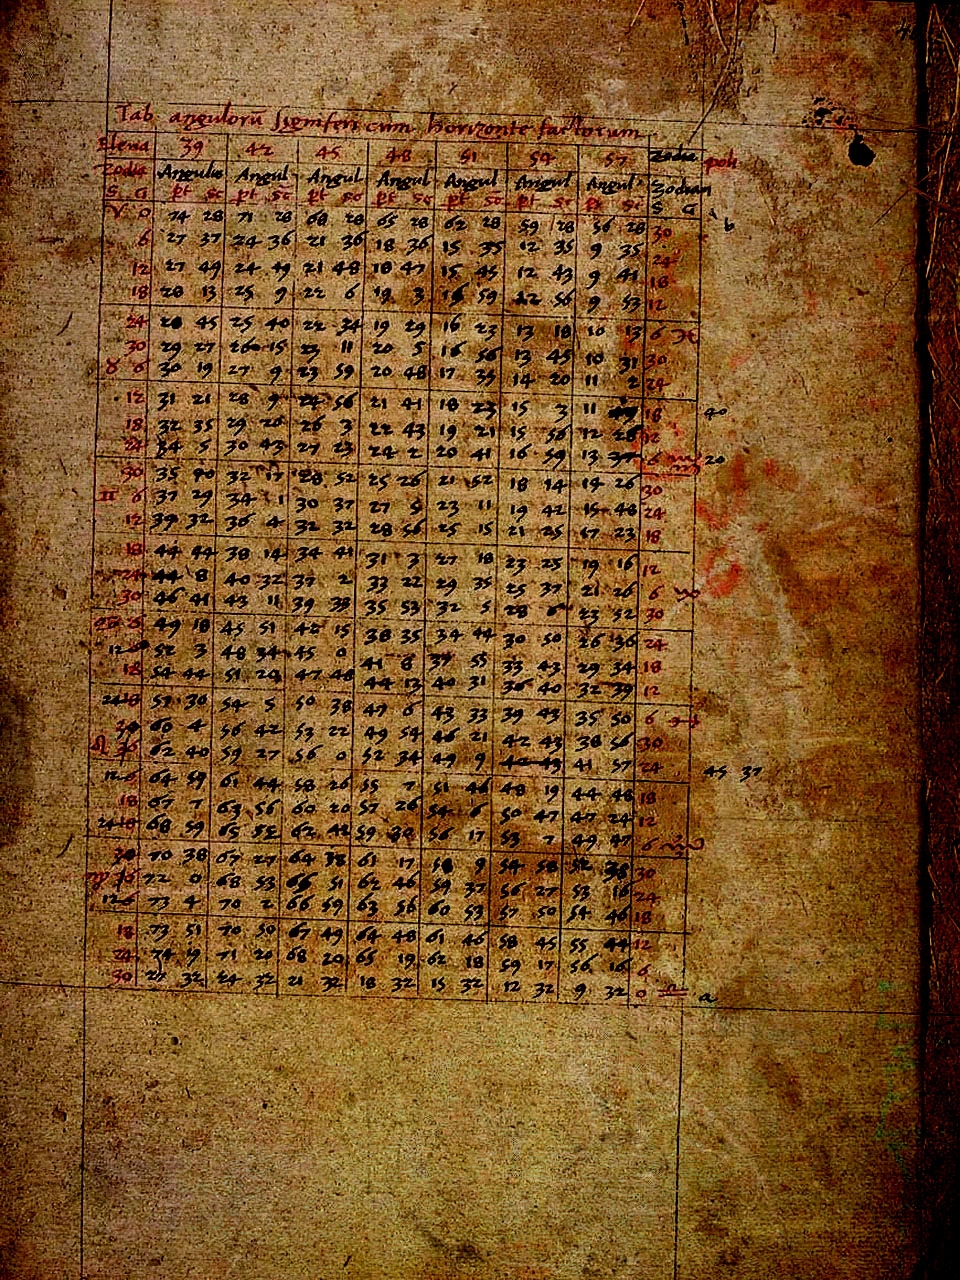 Tab angulorū Signiferi cum horizonte factorum
Eleva 39 42 45 48 51 54 57 Zodia poli
Zodia Angulus Angul Angul Angul Angul Angul Angul Zodiaci
S G pt sc pt sc pt sc pt sc pt sc pt sc pt sc S G
♈ 0 74 28 71 28 68 28 65 28 62 28 59 28 56 28 30 b
6 27 37 24 36 21 36 18 36 15 35 12 35 9 35 24
12 27 49 24 49 21 48 18 47 15 45 12 43 9 41 18
18 28 13 25 9 22 6 19 3 59 12 56 9 53 12
24 45 25 40 22 34 19 29 16 23 13 18 10 13 6 ♓
30 29 27 26 15 23 11 20 5 16 56 13 45 10 31 30
♉ 6 30 19 27 9 23 59 20 48 17 35 14 20 11 2 24
12 31 21 28 9 24 56 21 41 18 23 15 3 11 18 40
18 32 35 29 20 26 3 22 43 19 21 15 56 12 28 12
24 34 5 30 43 27 23 24 2 20 41 16 59 13 6 ♒ 20
30 35 32 17 28 52 25 26 21 52 18 14 14 26 30
♊ 6 37 29 34 1 30 37 27 5 23 11 19 42 15 48 24
12 39 32 36 4 32 32 28 56 25 15 21 25 17 23 18
18 44 44 38 14 34 41 31 3 27 18 23 25 19 16 12
24 44 8 40 32 37 2 33 22 29 35 25 37 21 26 6 ♑
30 46 41 43 11 39 35 53 32 5 28 23 52 30
♋ 6 49 18 45 51 42 15 38 35 34 44 30 50 26 36 24
12 52 3 48 34 45 0 41 8 37 55 33 43 29 34 18
18 54 44 51 20 47 48 44 13 40 31 36 40 32 39 12
24 57 30 54 5 50 38 47 6 43 33 39 43 35 50 6 ♐
30 60 4 56 42 53 22 49 54 46 21 42 43 38 56 30
♌ 6 62 40 59 27 56 0 52 34 49 9 41 57 24 45 37
12 64 59 61 44 58 26 55 7 51 46 48 19 44 48 18
18 67 7 63 56 60 20 57 26 54 6 50 47 47 24 12
24 68 59 65 52 62 42 59 56 17 53 7 49 47 6 ♏
30 70 38 67 27 64 61 17 58 9 54 58 30
♍ 6 72 0 68 53 51 62 46 59 37 56 27 53 16 24
12 73 4 70 2 66 59 63 56 60 53 57 50 54 46 18
18 73 51 70 50 67 49 64 48 61 46 58 45 55 44 12
24 74 19 71 20 68 20 65 19 62 18 59 17 56 16 6
30 27 32 24 32 21 32 18 32 15 32 12 32 9 32 0 ♎ a